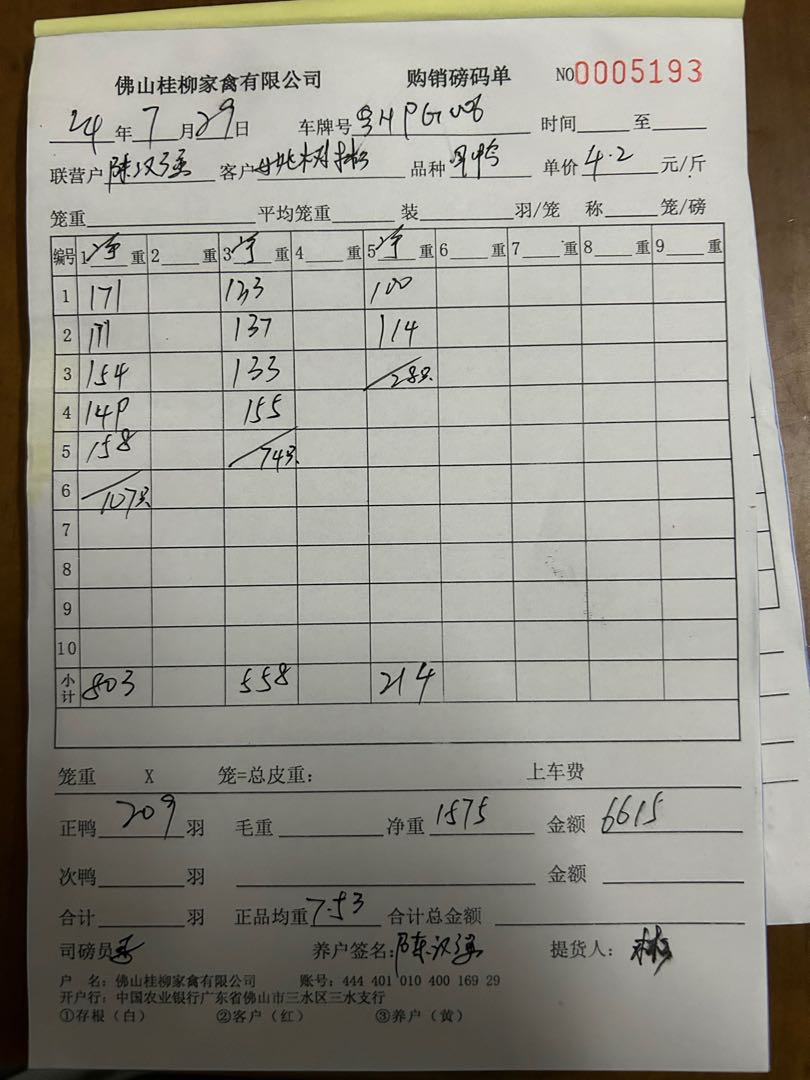 佛山桂柳家禽有限公司 购销磅码单 NO0005193
24年7月29日 车牌号 时间 至
联营户 陈汉强 客户 品种 单价 4.2 元/斤
笼重 平均笼重 装 羽/笼 称 笼/磅
编号 1净重 2重 3净重 4重 5净重 6重 7重 8重 9重
1 171 133 100
2 171 137 114
3 154 133 28只
4 149 155
5 158 74只
6 107只
7
8
9
10
小计 803 558 214
笼重 X 笼=总皮重: 上车费
正鸭 209 羽 毛重 净重 1575 金额 6615
次鸭 羽 金额
合计 羽 正品均重 7.53 合计总金额
司磅员 养户签名:陈汉强 提货人:
户 名:佛山桂柳家禽有限公司 账号:444 401 010 400 169 29
开户行:中国农业银行广东省佛山市三水区三水支行
①存根(白) ②客户(红) ③养户(黄)